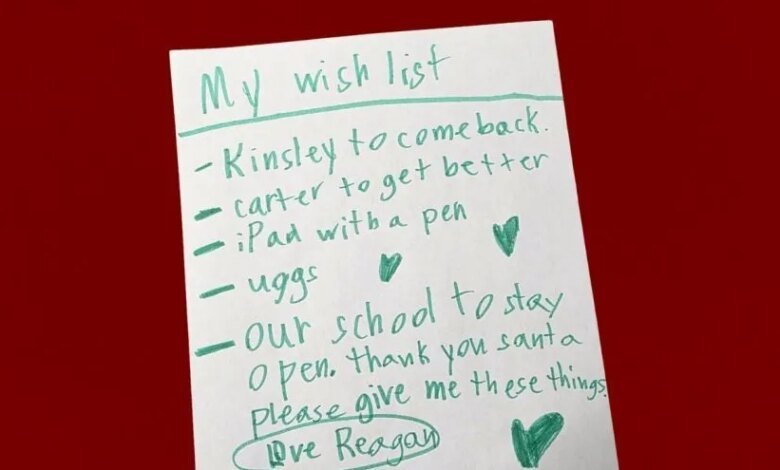 My wish list
- Kinsley to come back.
- carter to get better
- iPad with a pen
- uggs
- our school to stay
open. thank you santa
please give me these things
Love Reagan